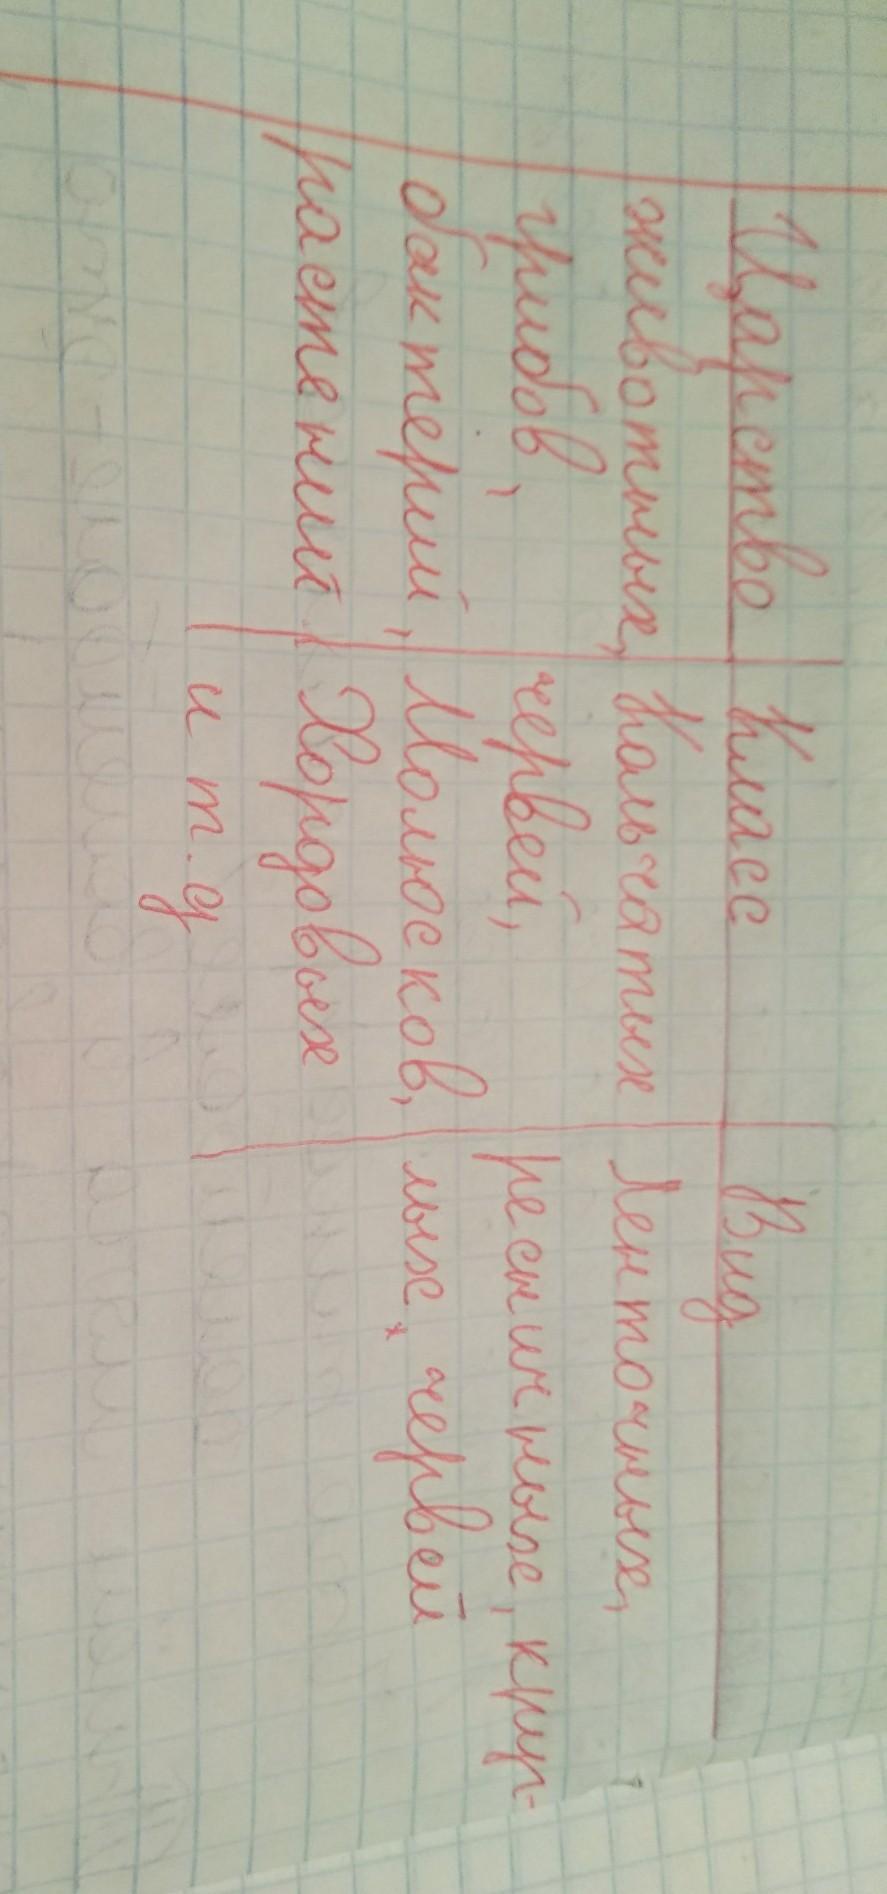 Царство Класс Вид
животных, Кольчатых Ленточных,
грибов, червей, ресничных, круг-
бактерий, Молюсков, лых червей
растений Хордовых
и т.д